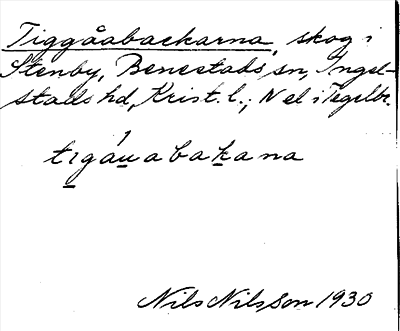 Tiggåabackarna, skog i
Stenby, Benestads sn, Ingel-
stads hd, Krist. l.; N el i Tegelbr.
tɩgáu̲abaḵana
Nils Nilsson 1930